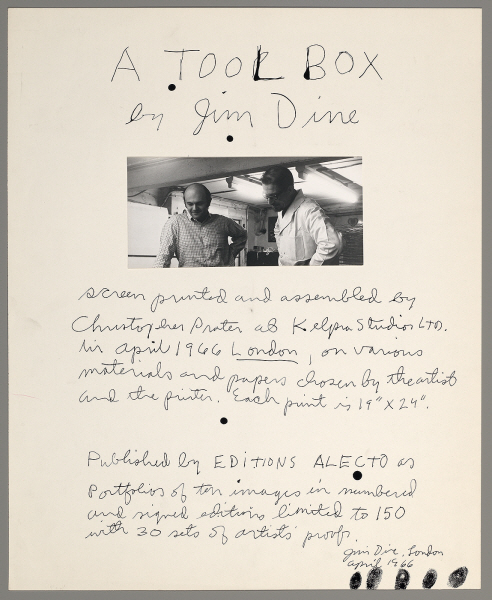 A TOOL BOX
by Jim Dine
screen printed and assembled by
Christopher Prater at Kelpra Studios LTD.
in april 1966 London, on various
materials and papers chosen by the artist
and the printer. Each print is 19" X 24".
Published by EDITIONS ALECTO as
portfolios of ten images in numbered
and signed editions limited to 150
with 30 sets of artists' proofs.
Jim Dine, London
april 1966